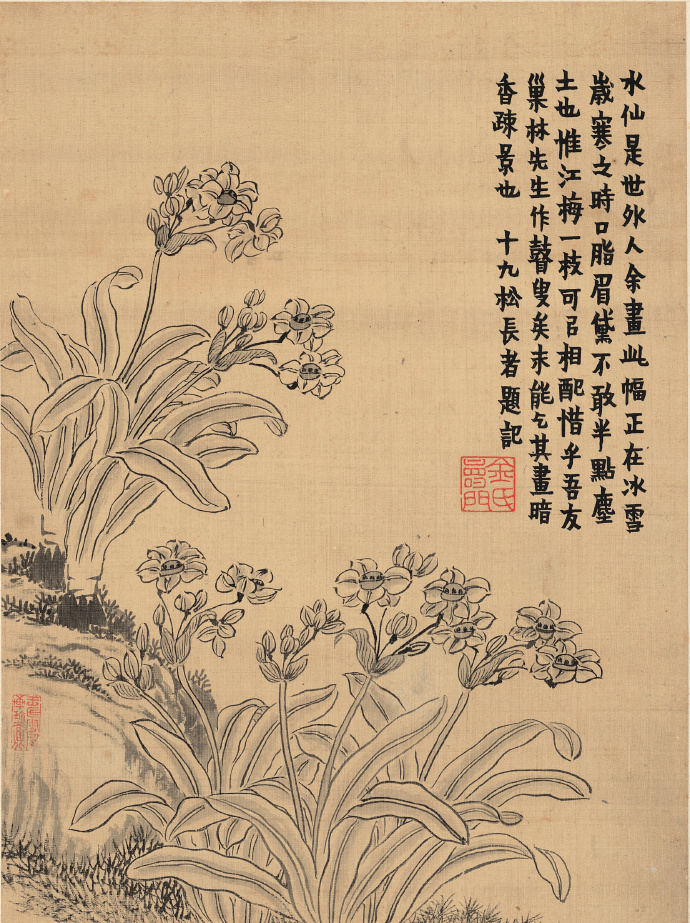 水仙是世外人余畫此幅正在冰雪
歲寒之時口脂眉黛不敢半點塵
土也惟江梅一枝可㠯相配惜乎吾友
巢林先生作瞽叟矣未能乞其畫暗
香疎景也　十九松長者題記
金氏壽門